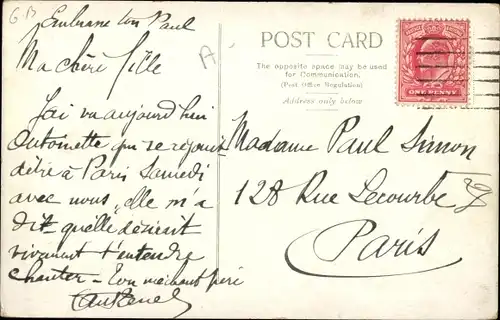 G B
Embrasse ton Paul
Ma chère fille
J'ai vu aujourd'hui
Antoinette qui se rejouit
d'être à Paris Samedi
avec nous, elle m'a
dit qu'elle désirait
vivement t'entendre
chanter - Ton méchant père
A
POST CARD
The opposite space may be used
for Communication.
(Post Office Regulation)
Address only below
ONE PENNY
Madame Paul Simon
128 Rue Lecourbe
Paris